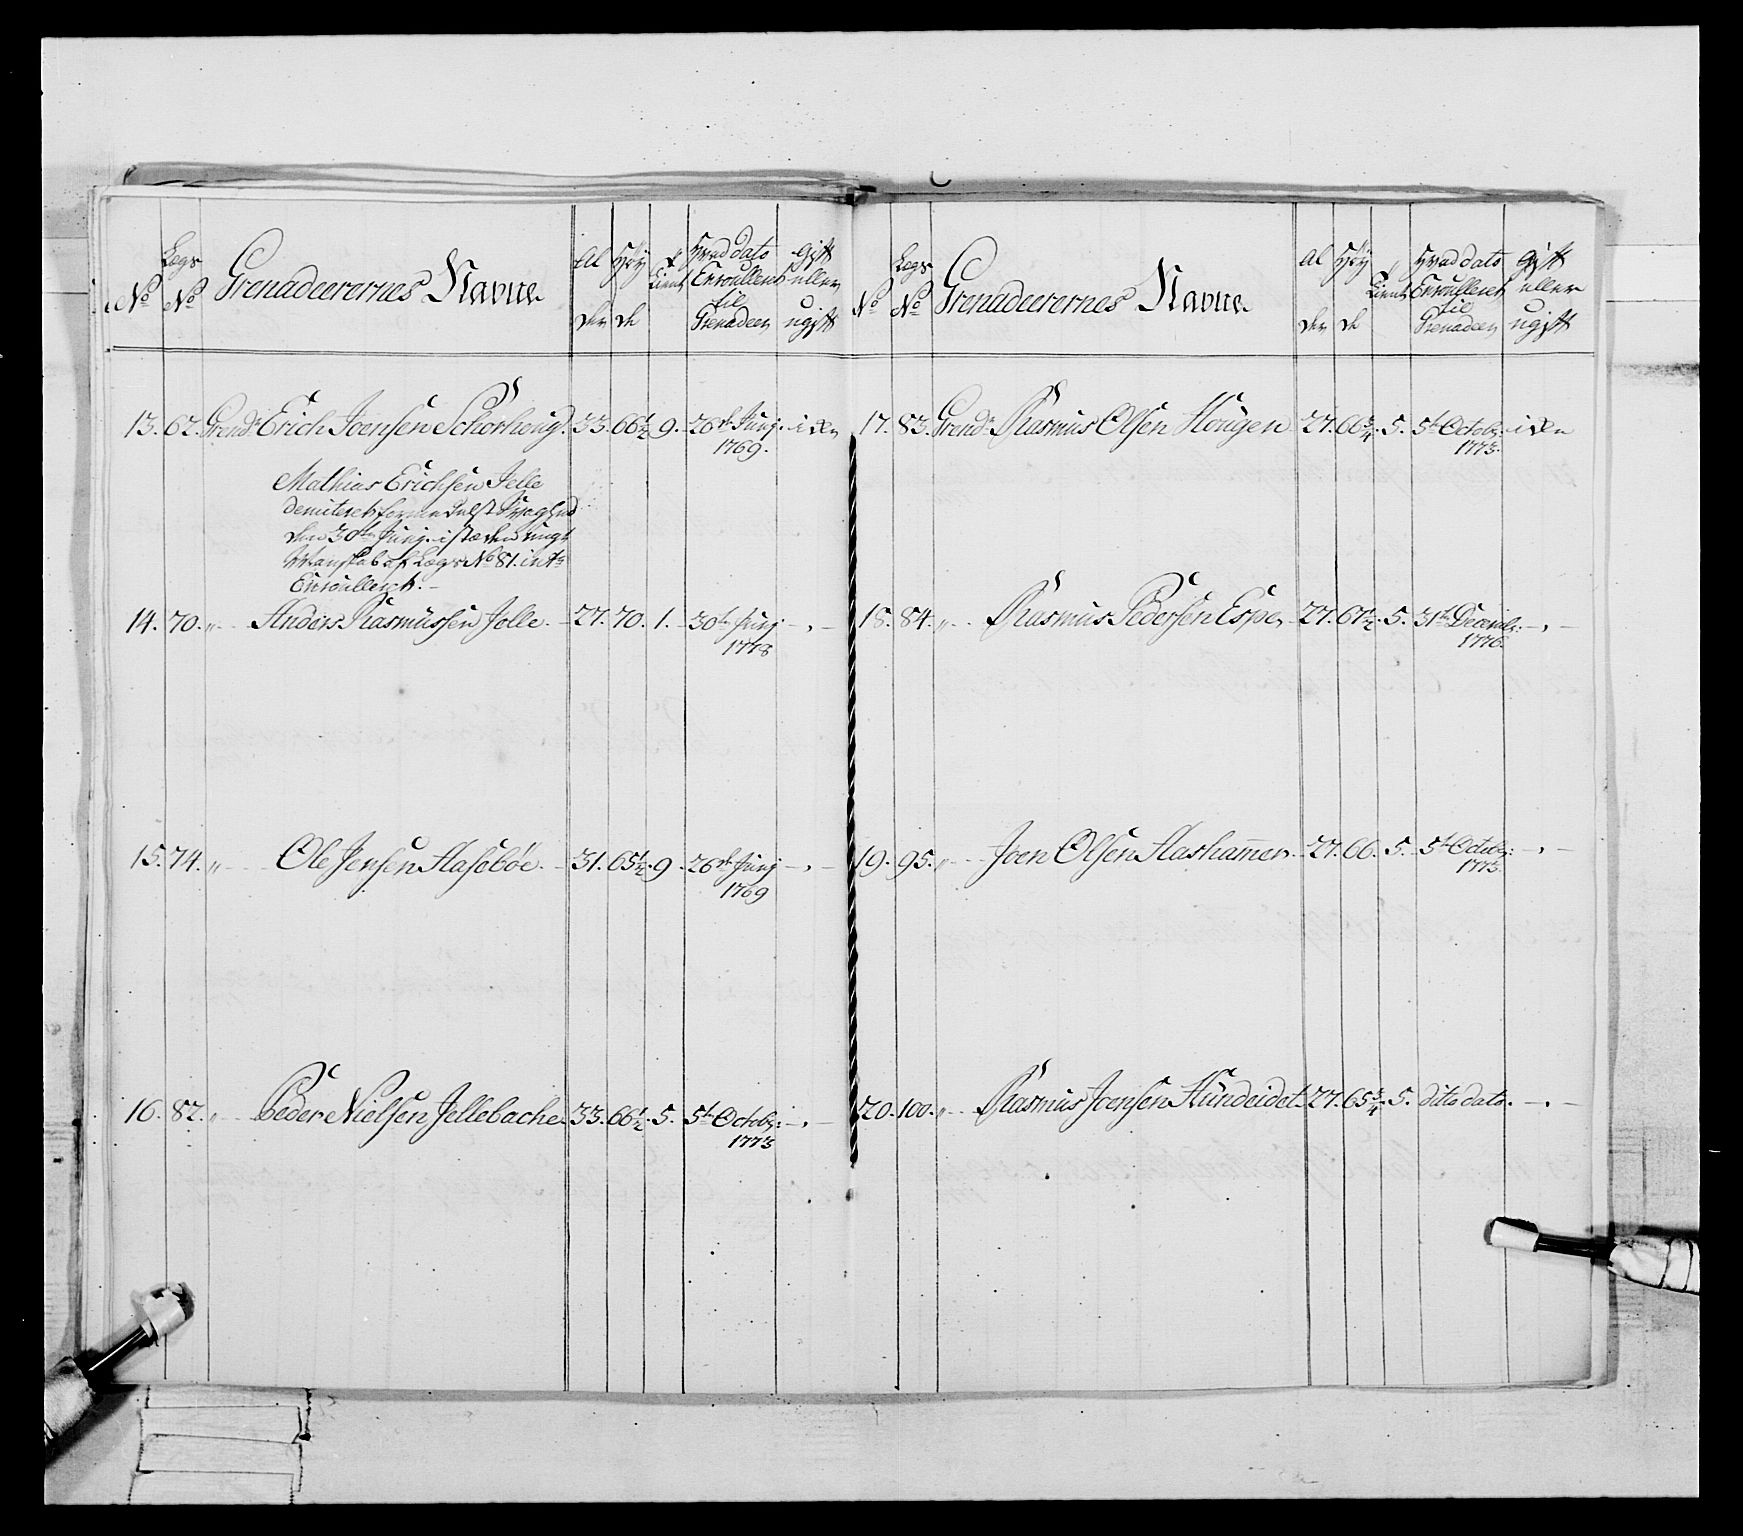 No Lægs No Grenadeerernes Navne Al der Høy de Tient Hvad dato Enroulleret til Grenadeer gift eller ugift
13. 62. Grend: Erich Joensen Schorhoug. 33. 66½ 9. 26de Junj. 1769.
Mathias Erichsen Jelle
demiteret formedelst Svaghed
den 30te Junj. i stæden ungt
Mandskab af Lægs No 81. indt:
Enroulleret.
14. 70. „ Anders Rasmussen Jelle. 27. 70. 1. 30te Junj. 1778
15. 74. „ Ole Jensen Aasebøe. 31. 65½. 9. 26de Junj. 1769
16. 82. „ Peder Nielsen Jellebache. 33. 66½. 5. 5t October: 1773
No Lægs No Grenadeerernes Navne. Al der Høy de Tient Hvad dato Enroulleret til Grenadeer gift eller ugift
17. 83. Grend: Rasmus Olsen Hougen 27. 66¾. 5. 5t Octobr: 1773.
18. 84. „ Rasmus Pedersen Espe. 27. 67½. 5. 31te Decembr: 1776.
19. 95. „ Joen Olsen Aashammer. 27. 66. 5. 5t Octobr: 1773.
20. 100. „ Rasmus Joensen Hundeidet. 27. 65¾. 5. dito dato.